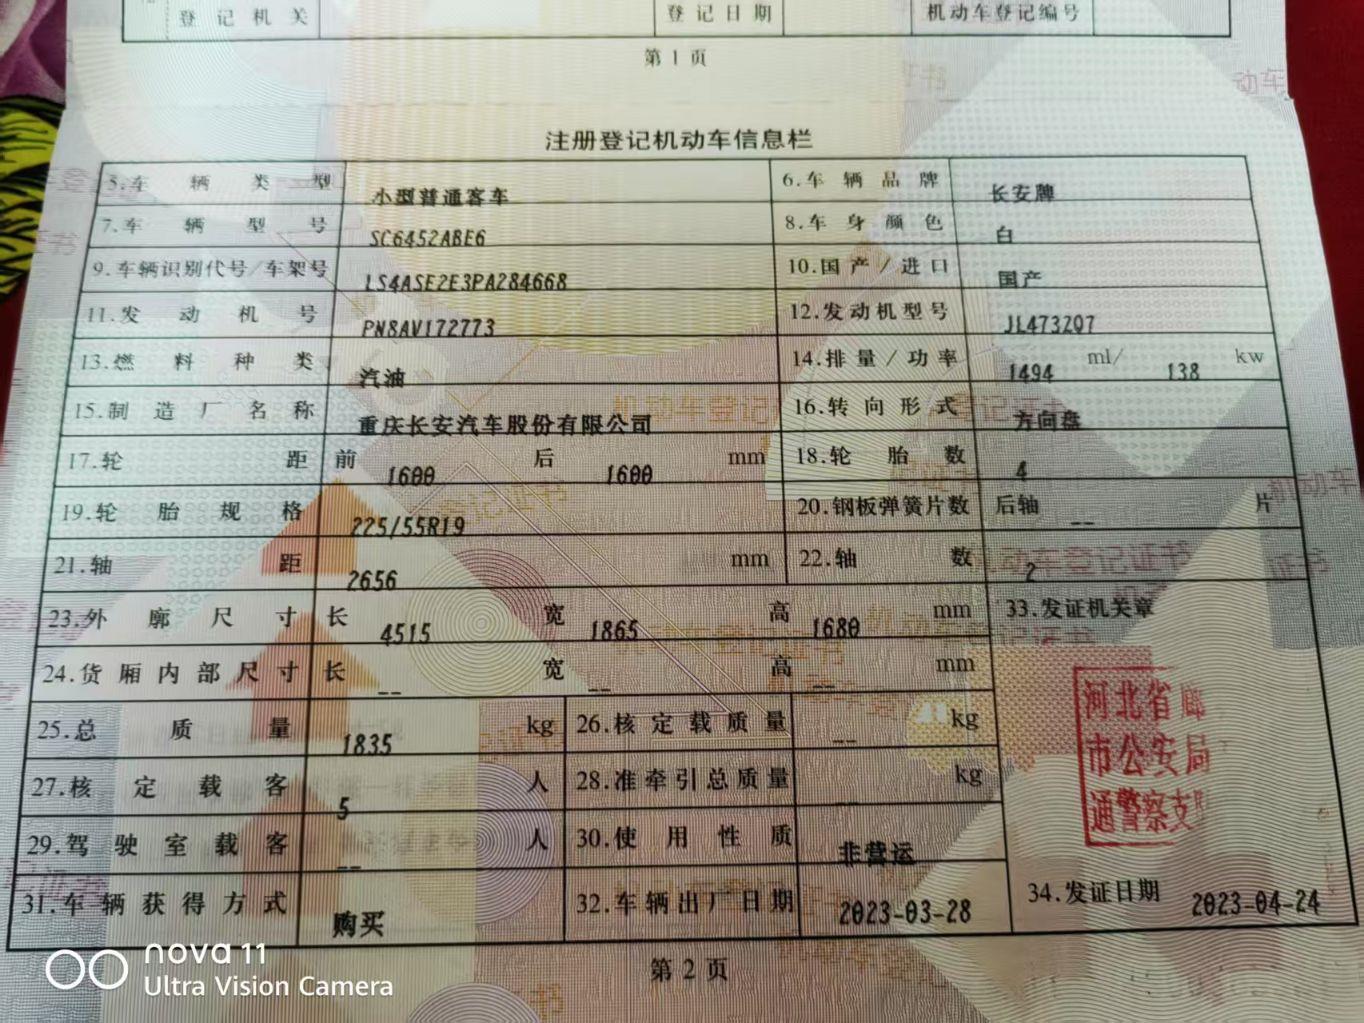 登记机关 登记日期 机动车登记编号
第1页
注册登记机动车信息栏
5.车辆类型 小型普通客车 6.车辆品牌 长安牌
7.车辆型号 SC6452ABE6 8.车身颜色 白
9.车辆识别代号/车架号 LS4ASE2E3PA284668 10.国产/进口 国产
11.发动机号 PN8AV172773 12.发动机型号 JL473ZQ7
13.燃料种类 汽油 14.排量/功率 1494 ml/ 138 kw
15.制造厂名称 重庆长安汽车股份有限公司 16.转向形式 方向盘
17.轮距 前 1600 后 1600 mm 18.轮胎数 4
19.轮胎规格 225/55R19 20.钢板弹簧片数 后轴 -- 片
21.轴距 2656 mm 22.轴数 2
23.外廓尺寸 长 4515 宽 1865 高 1680 mm 33.发证机关章
24.货厢内部尺寸 长 -- 宽 -- 高 -- mm
河北省廊
25.总质量 1835 kg 26.核定载质量 -- kg
市公安局
27.核定载客 5 人 28.准牵引总质量 -- kg
通警察支队
29.驾驶室载客 -- 人 30.使用性质 非营运
31.车辆获得方式 购买 32.车辆出厂日期 2023-03-28 34.发证日期 2023-04-24
第2页
nova 11
Ultra Vision Camera